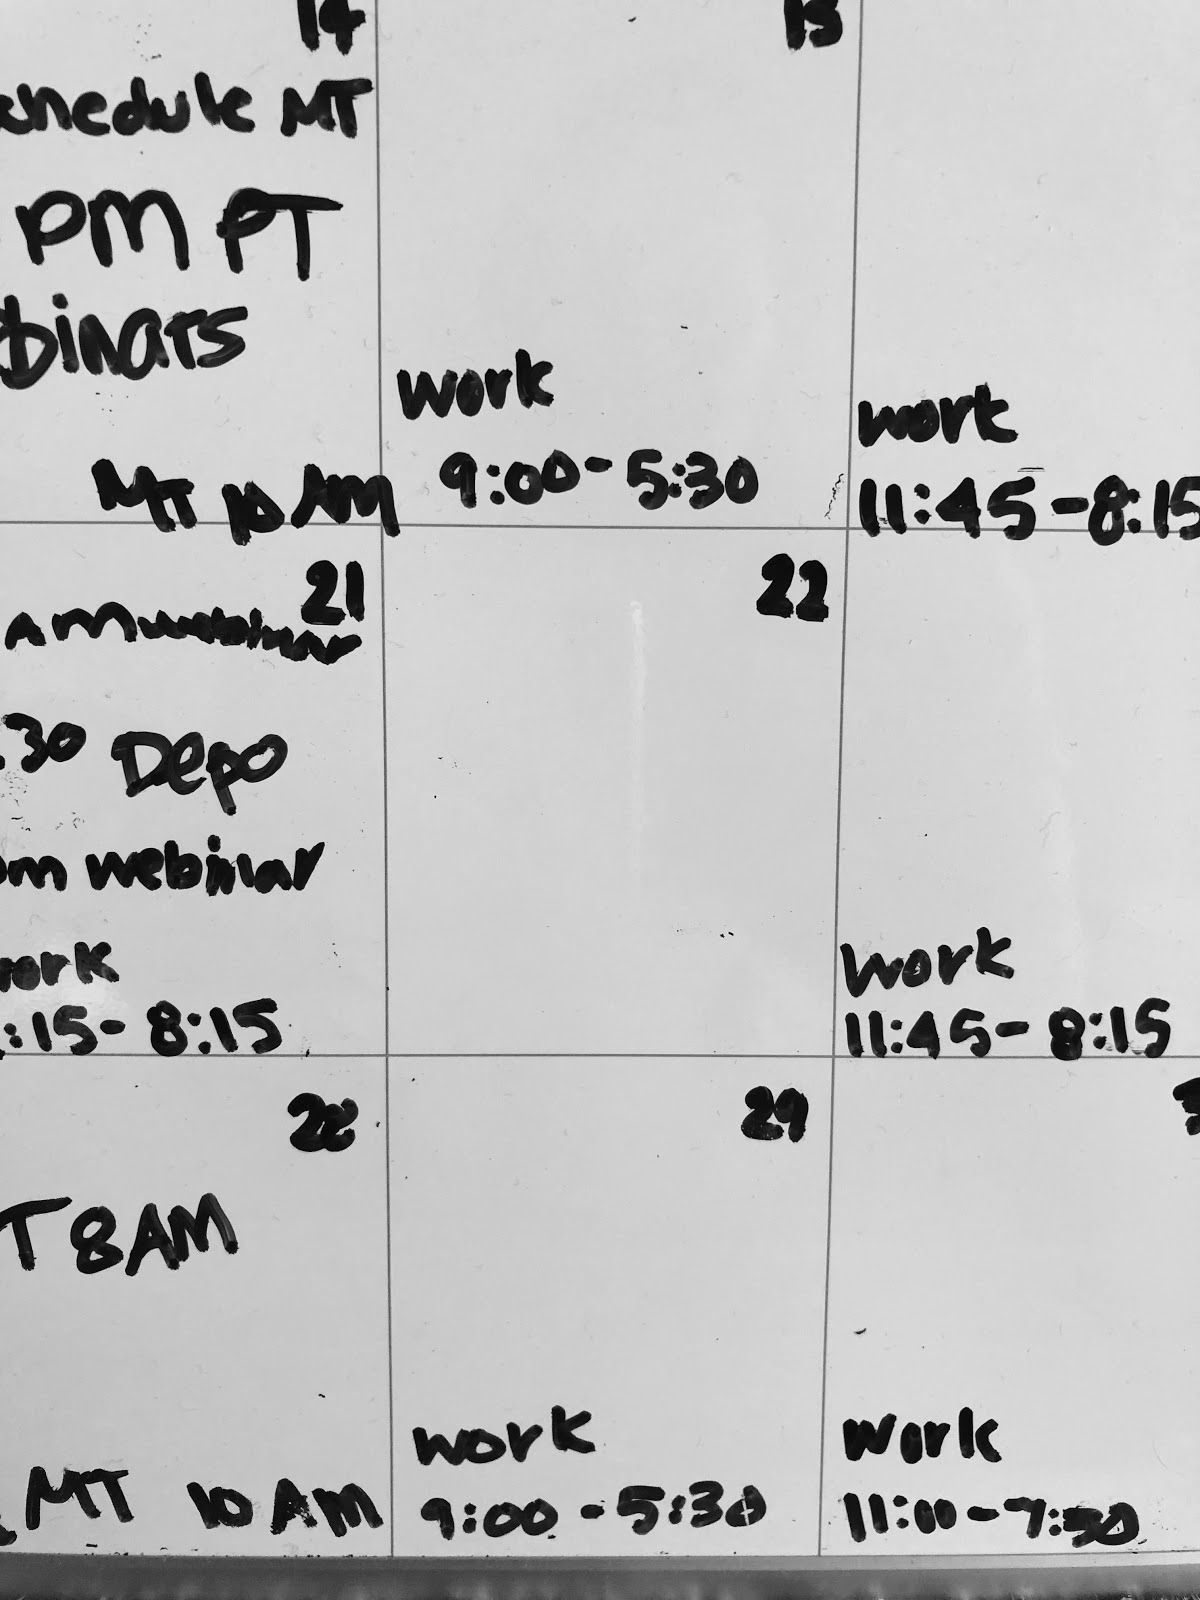 14
schedule MT
PM PT
binars
MT 10 AM
15
work
9:00-5:30
work
11:45-8:15
21
AM webinar
:30 Depo
pm webinar
work
:15-8:15
22
work
11:45-8:15
28
T 8AM
MT 10 AM
29
work
9:00-5:30
3
work
11:00-7:30